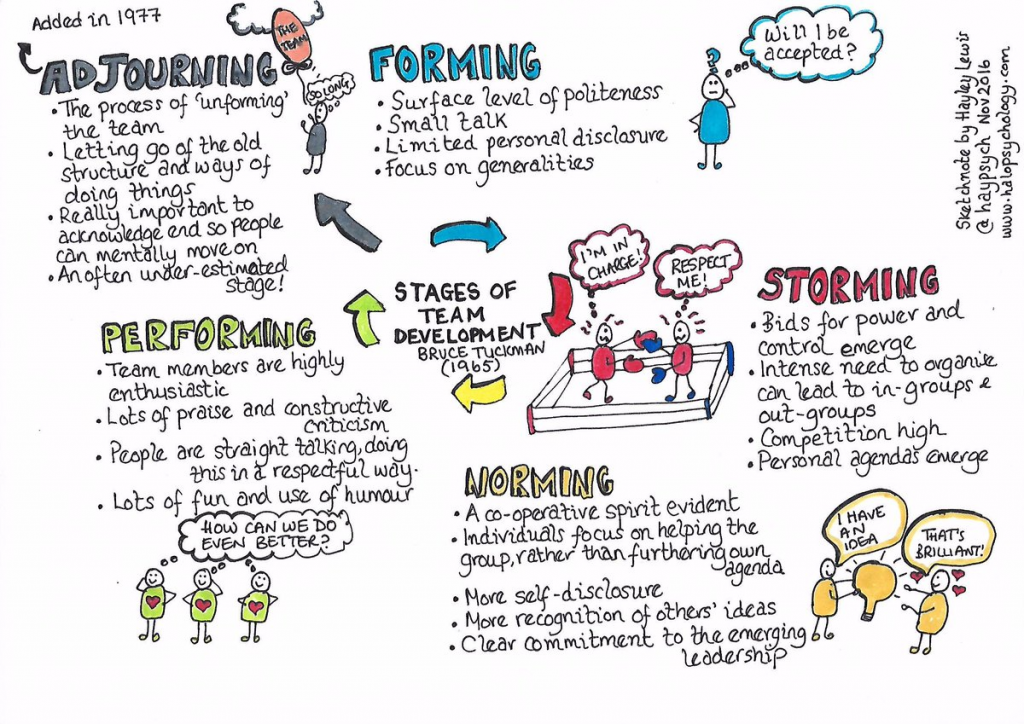 Added in 1977
THE
TEAM
SO LONG
ADJOURNING
• The process of 'unforming'
the team
• Letting go of the old
structure and ways of
doing things
• Really important to
acknowledge end so people
can mentally move on
• An often under-estimated
stage!
FORMING
• Surface level of politeness
• Small talk
• Limited personal disclosure
• Focus on generalities
?
Will I be
accepted?
Sketchnote by Hayley Lewis
@haypsych Nov 2016
www.halopsychology.com
STAGES OF
TEAM
DEVELOPMENT
BRUCE TUCKMAN
(1965)
I'M IN
CHARGE!
RESPECT
ME!
STORMING
• Bids for power and
control emerge
• Intense need to organise
can lead to in-groups &
out-groups
• Competition high
• Personal agendas emerge
PERFORMING
• Team members are highly
enthusiastic
• Lots of praise and constructive
criticism
• People are straight talking, doing
this in a respectful way.
• Lots of fun and use of humour
HOW CAN WE DO
EVEN BETTER?
NORMING
• A co-operative spirit evident
• Individuals focus on helping the
group, rather than furthering own
agenda
• More self-disclosure
• More recognition of others' ideas
• Clear commitment to the emerging
leadership
I HAVE
AN
IDEA
THAT'S
BRILLIANT!